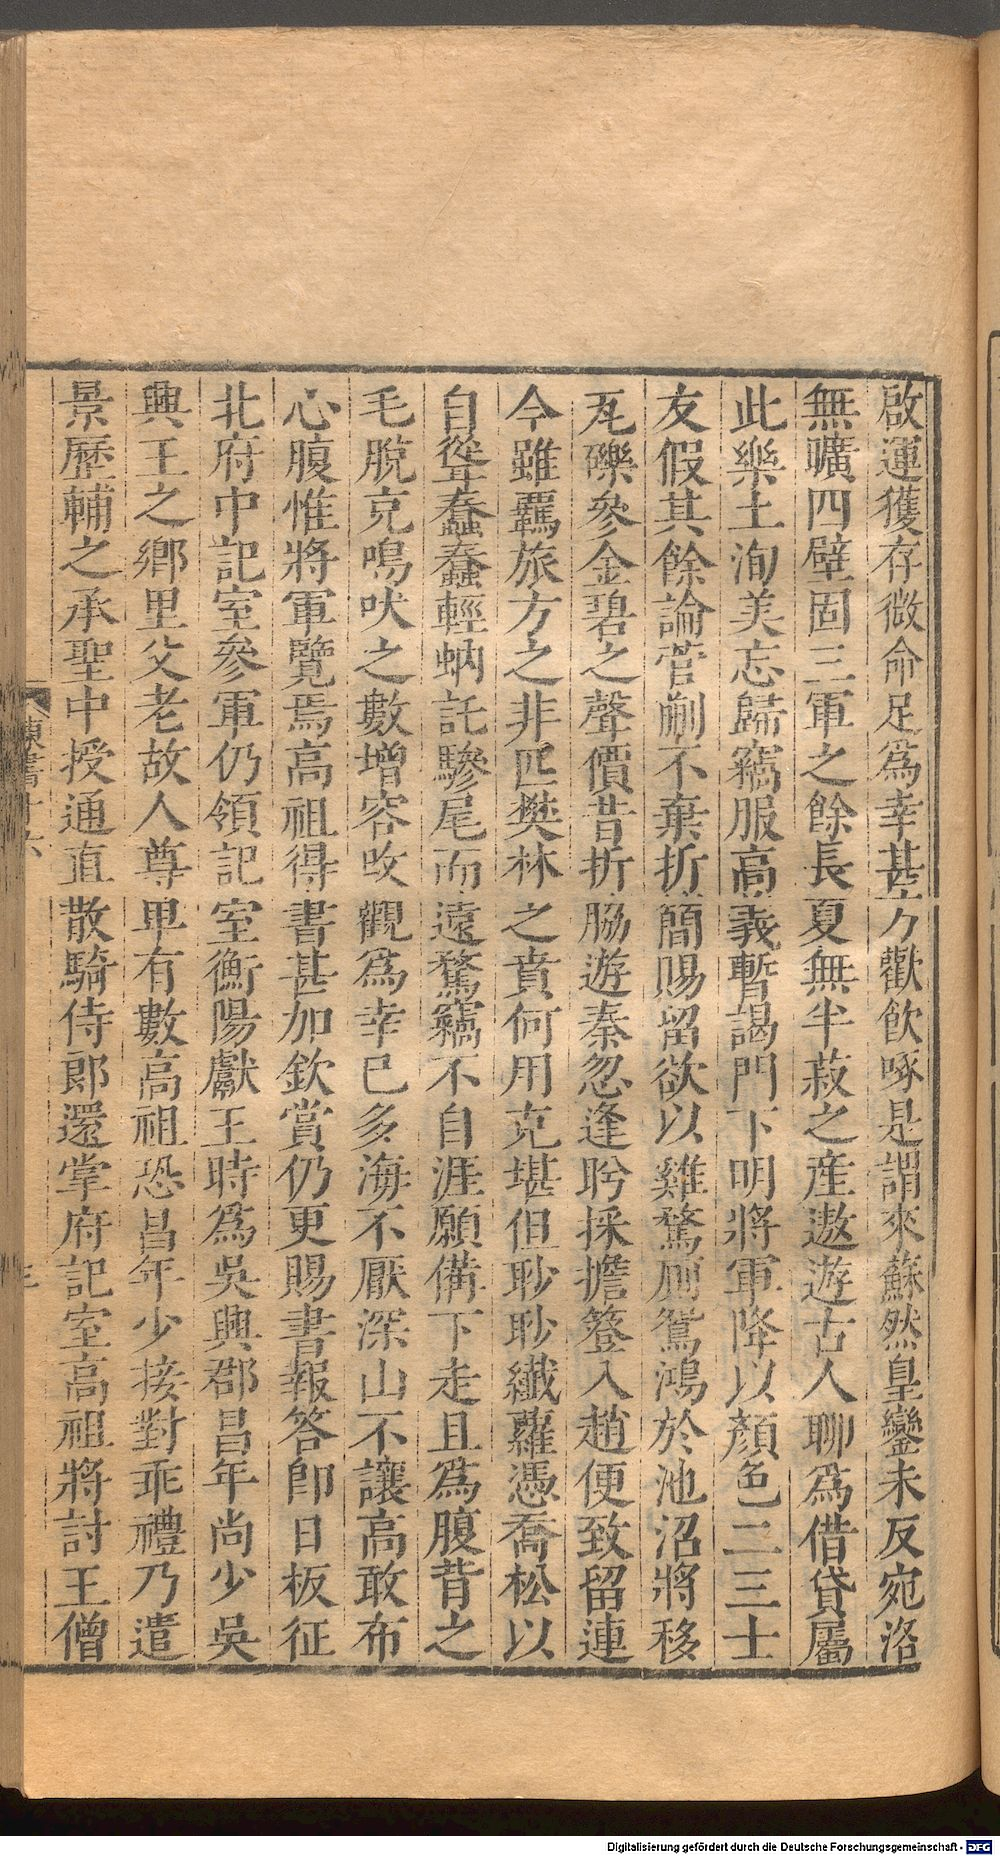 啟運獲存微命足爲幸甚方歡飲啄是謂來蘇然皇鑾未反宛洛
無曠四壁固三軍之餘長夏無半菽之産遨遊古人聊爲借貸屬
此樂土洵美忘歸竊服高義暫謁門下明將軍降以顏色二三士
友假其餘論菅蒯不棄折簡賜留欲以雞鶩廁鴛鴻於池沼將移
瓦礫參金碧之聲價昔折脇遊秦忽逢盻採擔簦入趙便致留連
今雖羈旅方之非匹樊林之賁何用克堪但眇眇纖蘿憑喬松以
自聳蠢蠢輕蚋託驂尾而遠騖竊不自涯願備下走且爲腹背之
毛脫充鳴吠之數增容改觀爲幸已多海不厭深山不讓高敢布
心腹惟將軍覽焉高祖得書甚加欽賞仍更賜書報答即日板征
北府中記室參軍仍領記室衡陽獻王時爲吳興郡昌年尚少吳
興王之鄉里父老故人尊卑有數高祖恐昌年少接對乖禮乃遣
景歷輔之承聖中授通直散騎侍郎還掌府記室高祖將討王僧
陳書十六
Digitalisierung gefördert durch die Deutsche Forschungsgemeinschaft - DFG